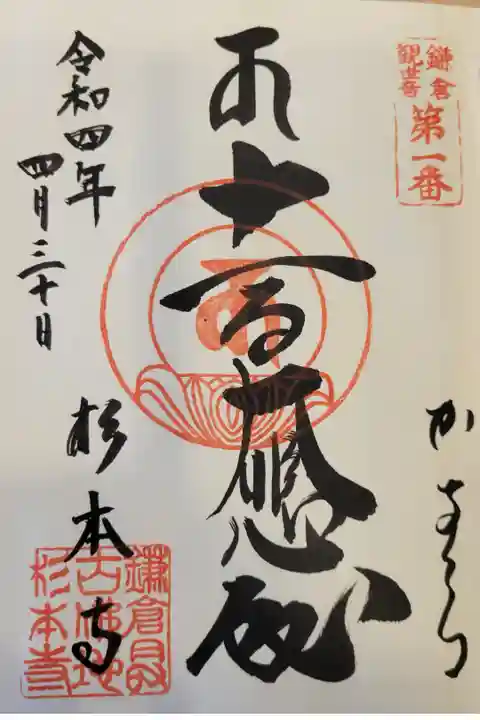 鎌倉
観世音
第一番
かまくら
十一面大悲殿
令和四年
四月三十日
杉本寺
鎌倉最
古佛地
杉本寺